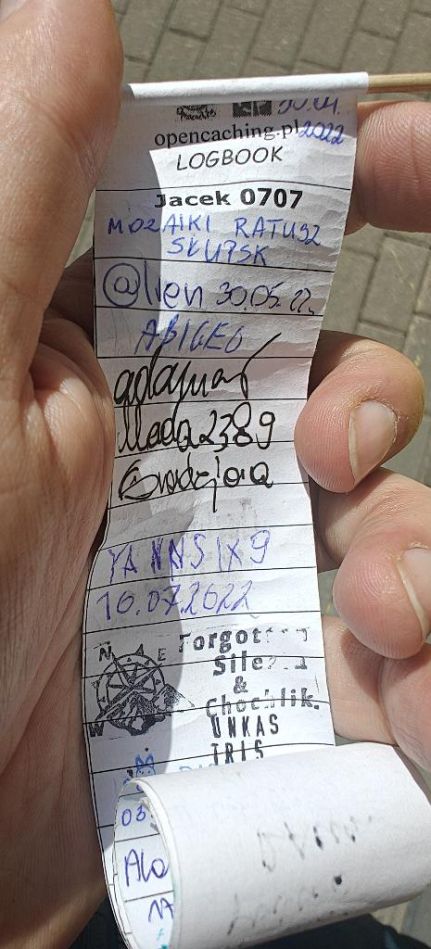 30.04.
opencaching.pl 2022
LOGBOOK
Jacek 0707
MOZAIKI RATUSZ
SŁUPSK
@lien 30.05.22r.
ABIGEO
Mada2389
YANNSIX9
10.07.2022
N E
Forgotten
Silence
&
W Chochlik.
UNKAS
TRIS
03
Alo
17